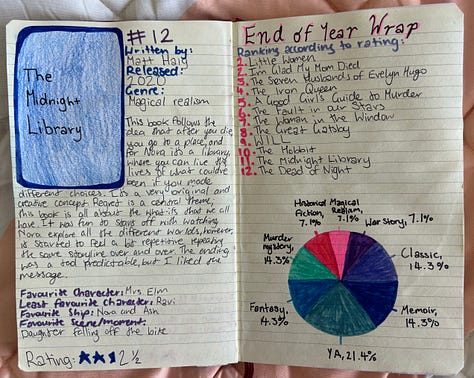 The
Midnight
Library
#12
Written by:
Matt Haig
Released:
2020
Genre:
Magical realism
This book follows the
idea that after you die,
you go to a place, and
for Nora its a library,
where you can live the
lives of what could've
been if you made
different choices. It's a very original and
creative concept. Regret is a central theme,
this book is all about the what ifs that we all
have. It was fun to start off with watching
Nora explore all the different worlds, however,
it started to feel a bit repetitive, repeating
the same storyline over and over. The ending
was a tad predictable, but I liked the
message.
Favourite Character: Mrs Elm
Least favourite Character: Ravi
Favourite Ship: Nora and Ash
Favourite Scene/moment:
Daughter falling off the bike
Rating: 2 1/2
End of Year Wrap
Ranking according to rating:
1. Little Women
2. I'm Glad My Mom Died
3. The Seven Husbands of Evelyn Hugo
4. The Iron Queen
5. A Good Girl's Guide to Murder
6. The Fault in our Stars
7. The Woman in the Window
8. The Great Gatsby
9. WILL
10. The Hobbit
11. The Midnight Library
12. The Dead of Night
Historical
Fiction,
7.1%
Magical
Realism,
7.1%
War Story, 7.1%
Classic,
14.3%
Memoir,
14.3%
YA, 21.4%
Fantasy,
4.3%
Murder
mystery,
14.3%